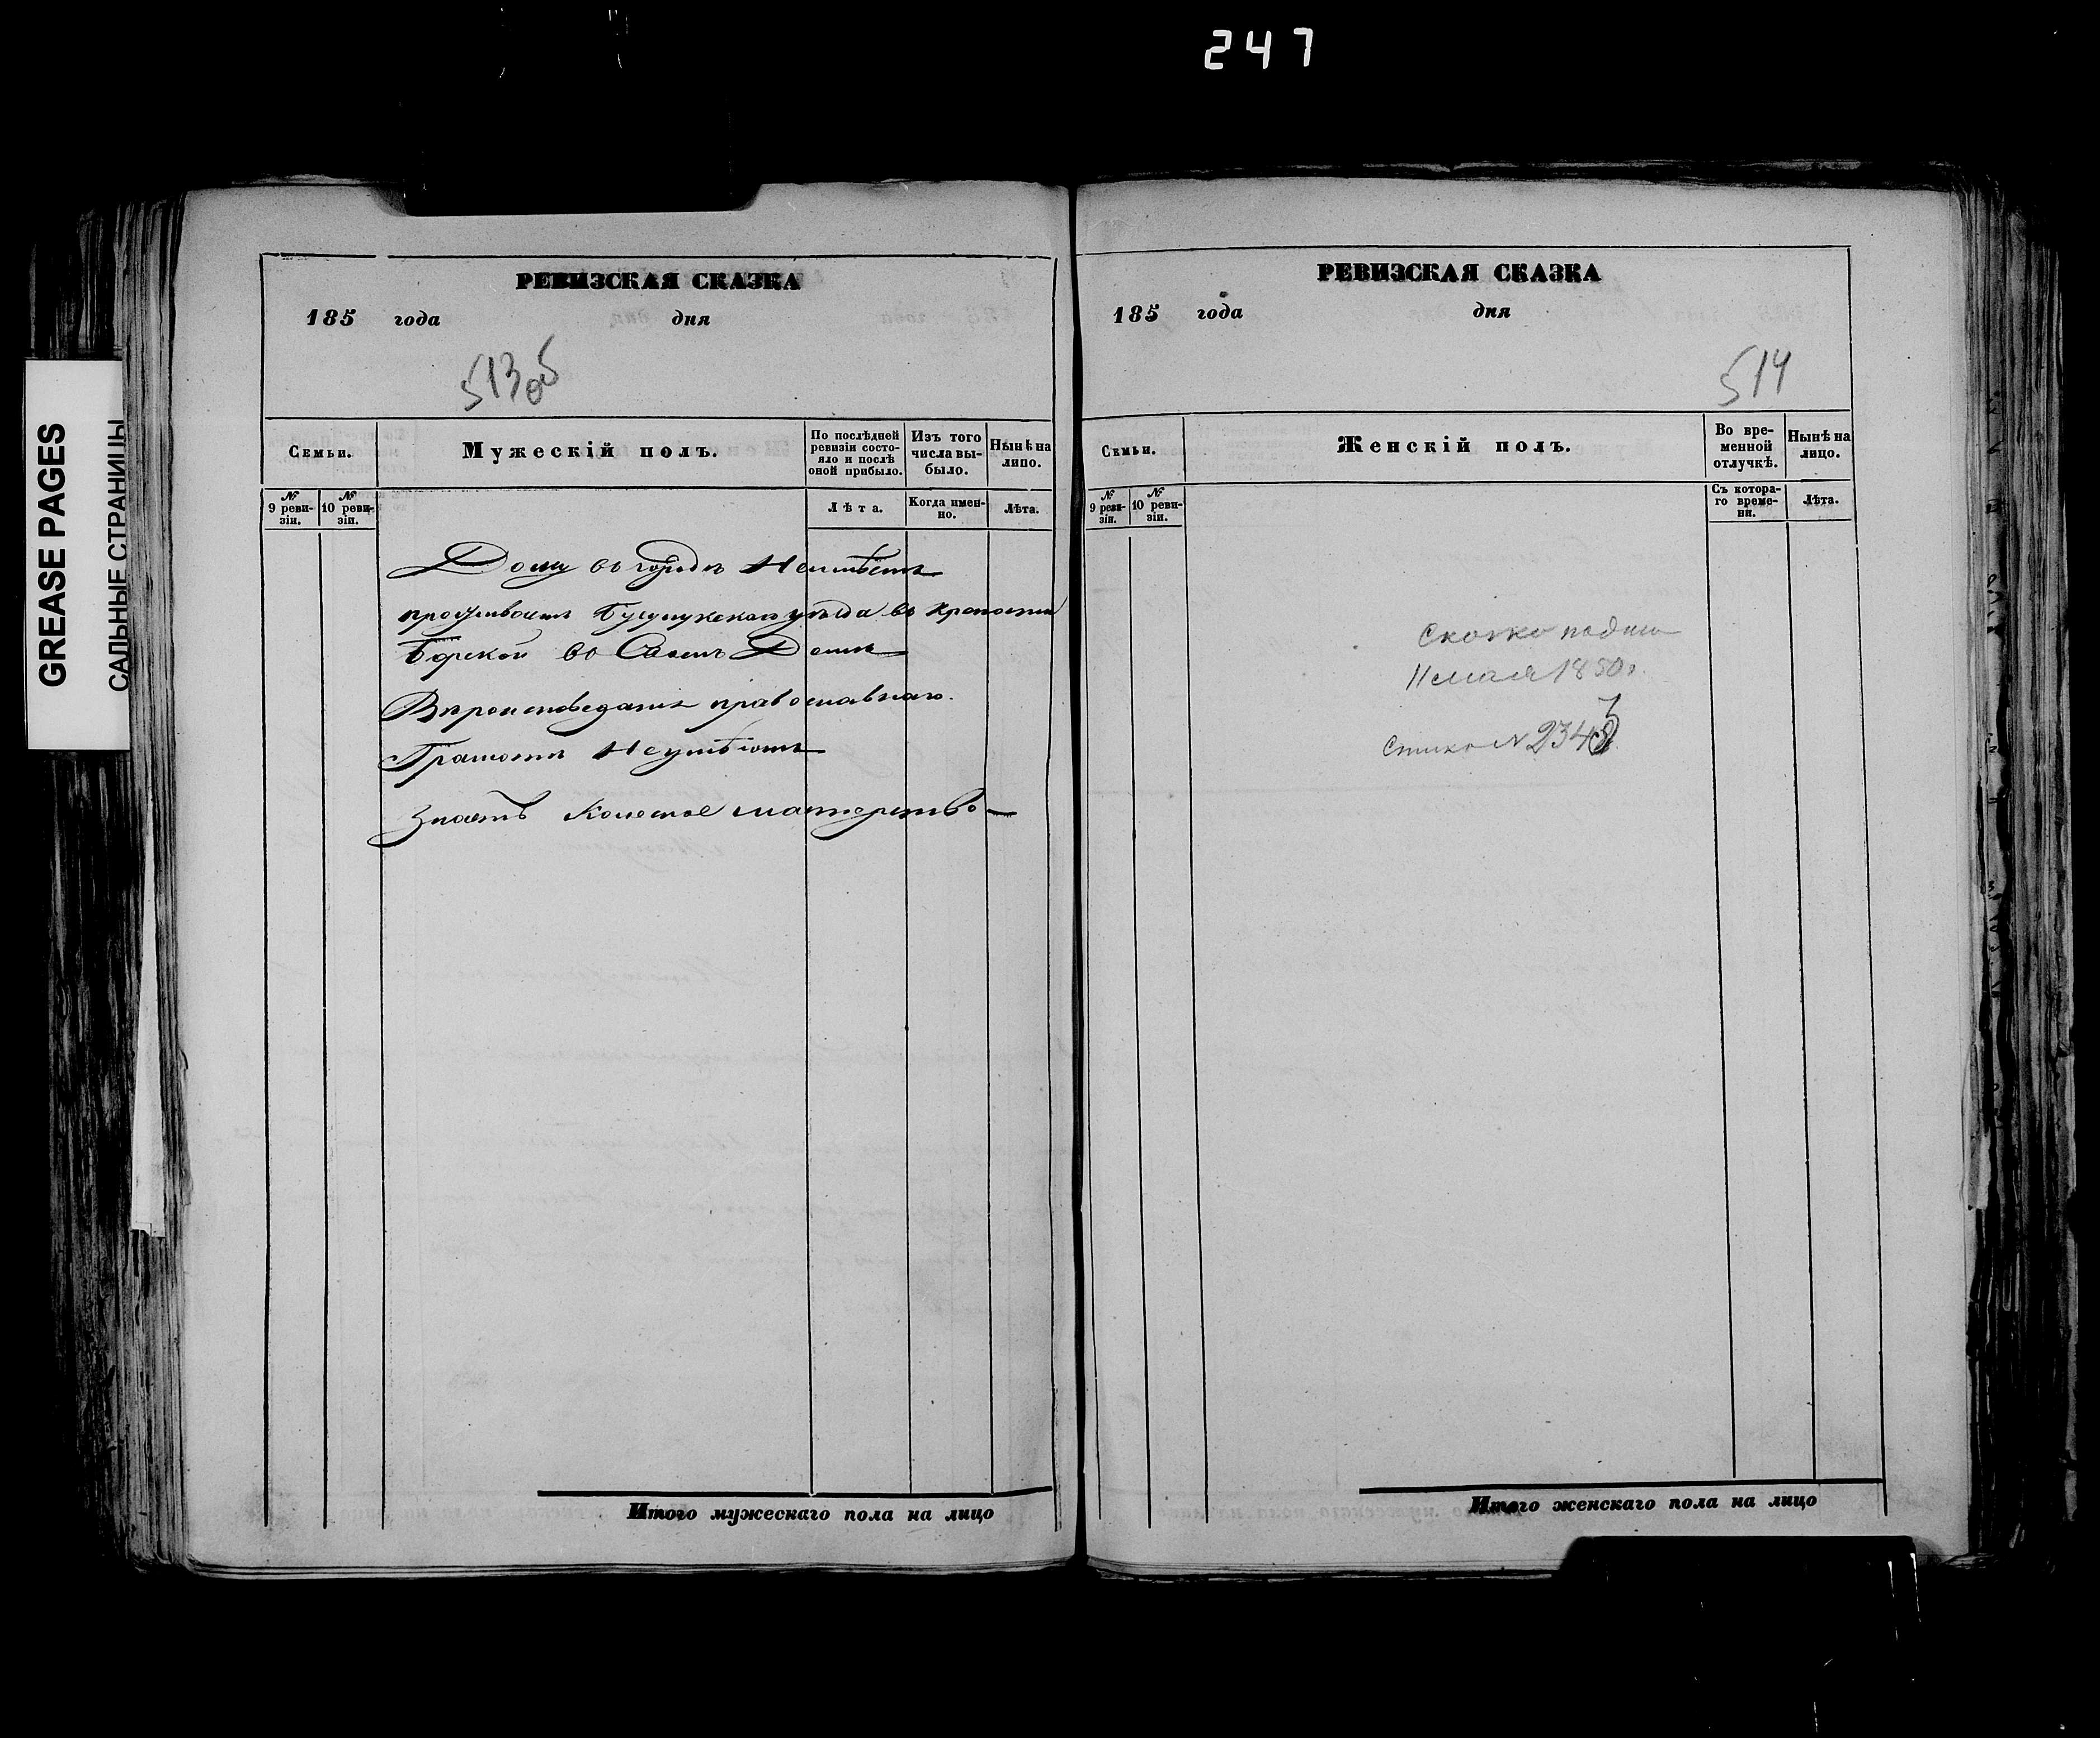 247
GREASE PAGES
САЛЬНЫЕ СТРАНИЦЫ
РЕВИЗСКАЯ СКАЗКА
185 года дня
513об
Семьи.
Мужескій полъ.
По послѣдней ревизіи состояло и послѣ оной прибыло.
Изъ того числа выбыло.
Нынѣ на лицо.
№ 9 ревизіи.
№ 10 ревизіи.
Лѣта.
Когда именно.
Лѣта.
Дому въ городѣ Неимѣетъ
проживаетъ Бузулукскаго уѣзда въ крепости
Борской въ Своемъ Доме
Вѣроисповеданія православнаго.
Грамоте Неумѣютъ
Знаетъ мастерство
Итого мужескаго пола на лицо
РЕВИЗСКАЯ СКАЗКА
185 года дня
514
Семьи.
Женскій полъ.
Во временной отлучкѣ.
Нынѣ на лицо.
№ 9 ревизіи.
№ 10 ревизіи.
Съ котораго времени.
Лѣта.
Сказка подана
11 мая 1850 г.
№ 234
Итого женскаго пола на лицо